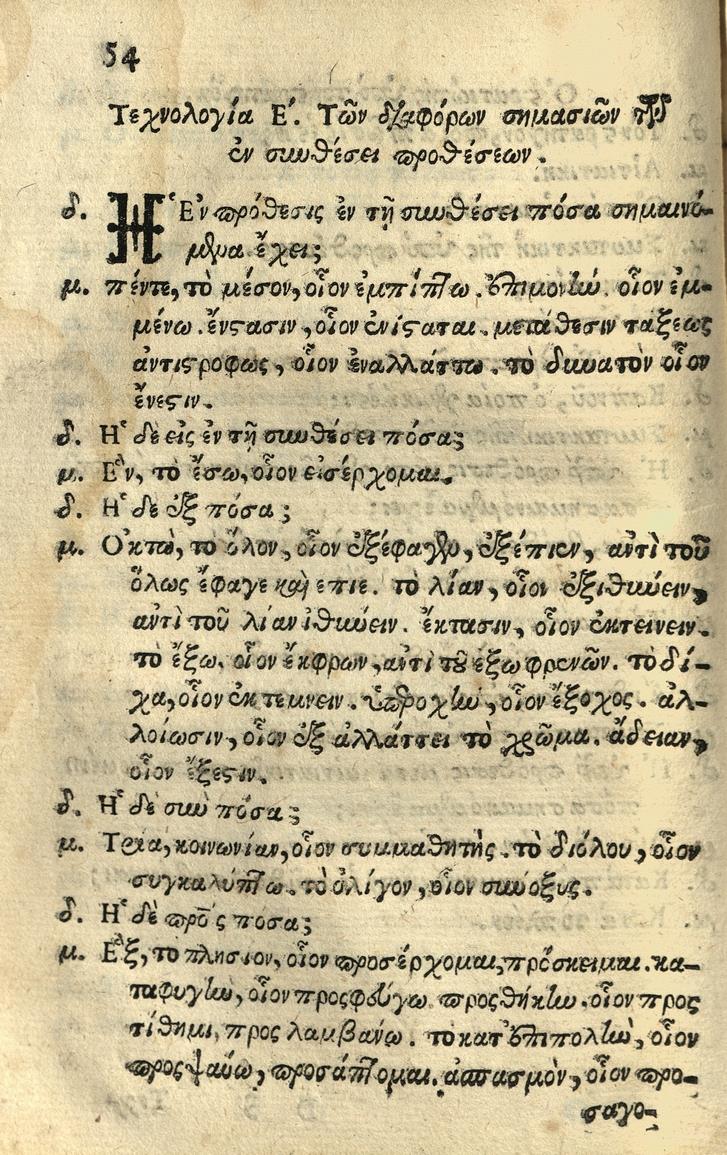 54
Τεχνολογία Ε΄. Τῶν διαφόρων σημασιῶν τῶν
ἐν συνθέσει προθέσεων.
δ. Ἡ Ἐν πρόθεσις ἐν τῇ συνθέσει πόσα σημαινό-
μενα ἔχει;
μ. πέντε, τὸ μέσον, οἷον ἐμπίπτω. ἐπιμονὴν. οἷον ἐμ-
μένω. ἔνστασιν, οἷον ἐνίσταται. μετάθεσιν τάξεως
ἀντιστρόφως, οἷον ἐναλλάττω. τὸ δυνατὸν οἷον
ἔνεστιν.
δ. Ἡ δὲ εἰς ἐν τῇ συνθέσει πόσα;
μ. Ἓν, τὸ ἔσω, οἷον εἰσέρχομαι.
δ. Ἡ δὲ ἐξ πόσα;
μ. Ὀκτὼ, τὸ ὅλον, οἷον ἐξέφαγεν, ἐξέπιεν, ἀντὶ τοῦ
ὅλως ἔφαγε καὶ επιε. τὸ λίαν, οἷον ἐξιθύνειν,
ἀντὶ τοῦ λίαν ἰθύνειν. ἔκτασιν, οἷον ἐκτείνειν.
τὸ ἔξω. οἷον ἔκφρων, ἀντὶ τοῦ ἔξω φρενῶν. τὸ δί-
χα, οἷον ἐκτεμνειν. ὑπεροχὴν, οἷον ἔξοχος. ἀλ-
λοίωσιν, οἷον ἐξ αλλάττει τὸ χρῶμα. ἄδειαν,
οἷον ἔξεστιν.
δ. Ἡ δὲ σὺν πόσα;
μ. Τρία, κοινωνίαν, οἷον συμμαθητής. τὸ διόλου, οἷον
συγκαλύπτω. τὸ ὀλίγον, οἷον σύνοξυς.
δ. Ἡ δὲ πρὸς ποσα;
μ. Ἓξ, το πλησιον, οἷον προσέρχομαι, πρόσκειμαι. κα-
ταφυγὴν, οἷον προςφεύγω. προςθήκην. οἷον προς
τίθημι, προς λαμβάνω. τὸ κατ' ἐπιπολὴν, οἷον
προςψαύω, προσάπτομαι. ἀσπασμὸν, οἷον προ-
σαγο-